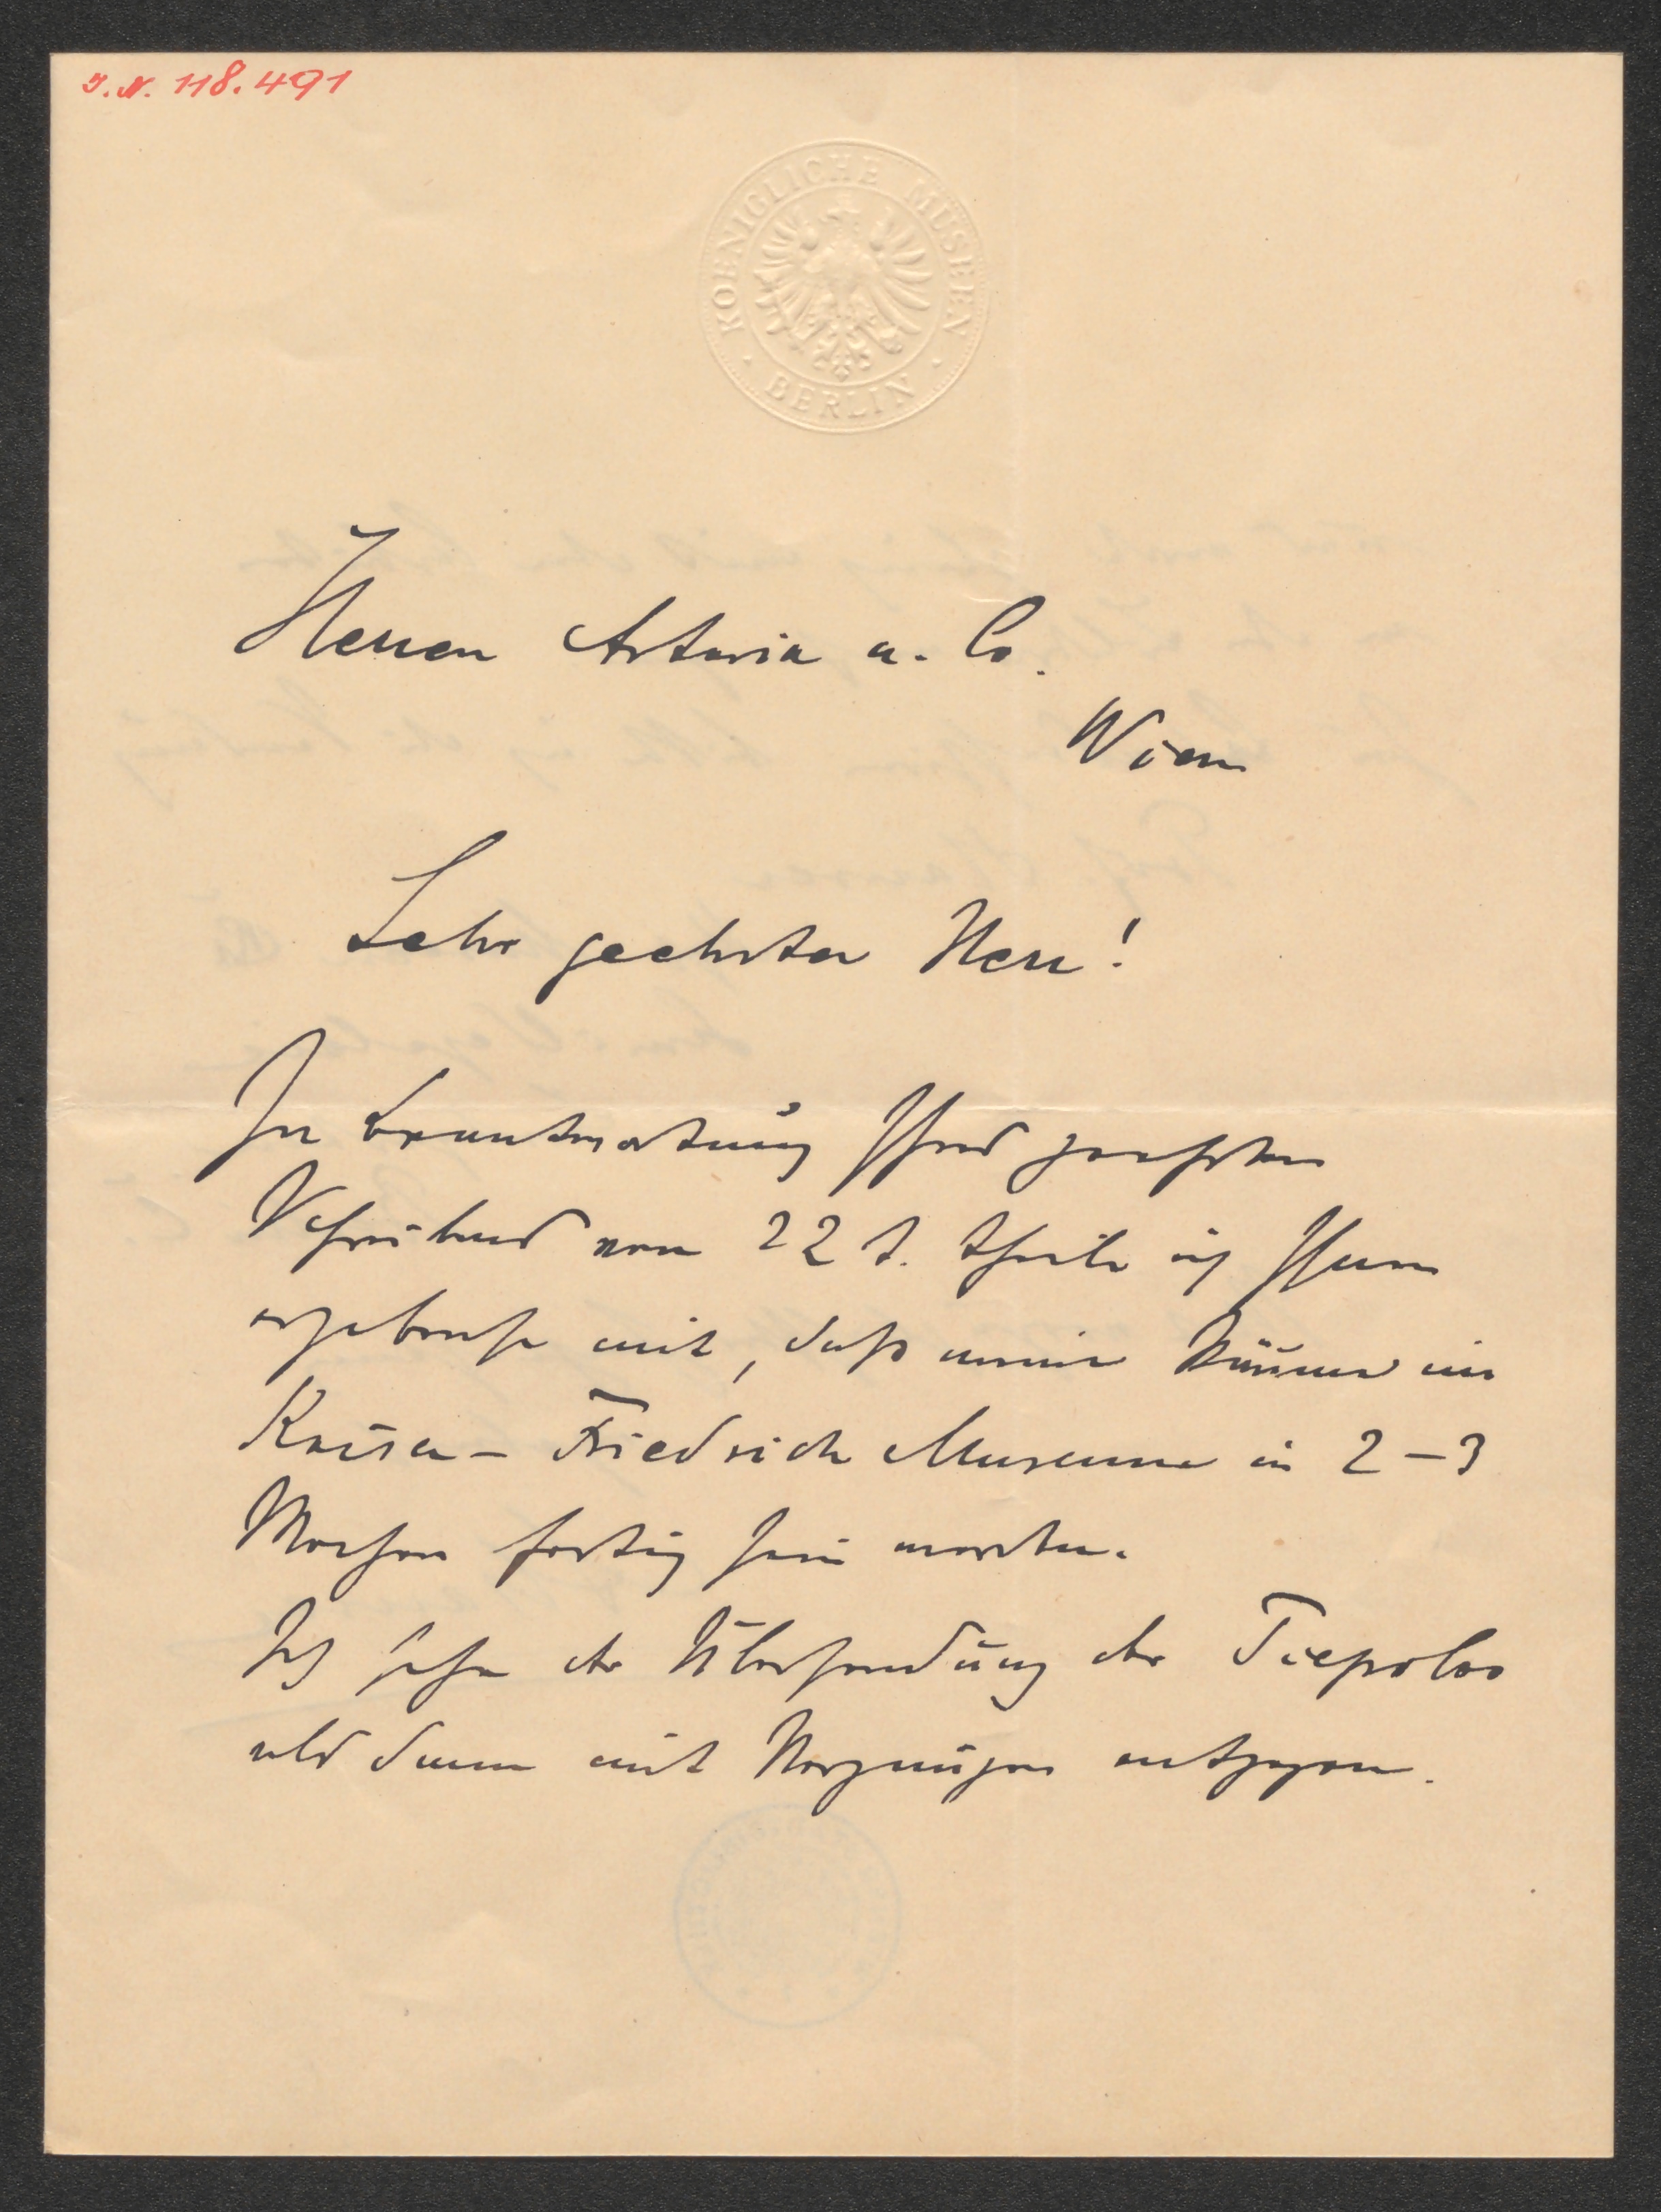 J. N. 118.491
KOENIGLICHE MUSEEN
BERLIN
Herren Artaria u. Co.
Wien
Sehr geehrter Herr!
In Beantwortung Ihres geehrten
Schreibens vom 22 d. theile ich Ihnen
ergebenst mit, daß meine Räume im
Kaiser-Friedrich Museum in 2-3
Wochen fertig sein werden.
Ich sehe der Übersendung der Tiepolos
als dann mit Vergnügen entgegen.